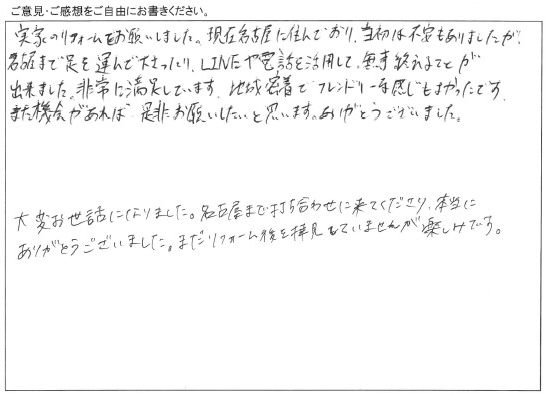 ご意見・ご感想をご自由にお書きください。
実家のリフォームをお願いしました。現在名古屋に住んでおり、当初は不安もありましたが、
名古屋まで足を運んで下さったり、LINEや電話を活用して、無事終えることが
出来ました。非常に満足しています。地域密着でフレンドリーな感じもよかったです。
また機会があれば是非お願いしたいと思います。ありがとうございました。
大変お世話になりました。名古屋まで打ち合わせに来てくださり、本当に
ありがとうございました。まだリフォーム後を拝見していませんが楽しみです。